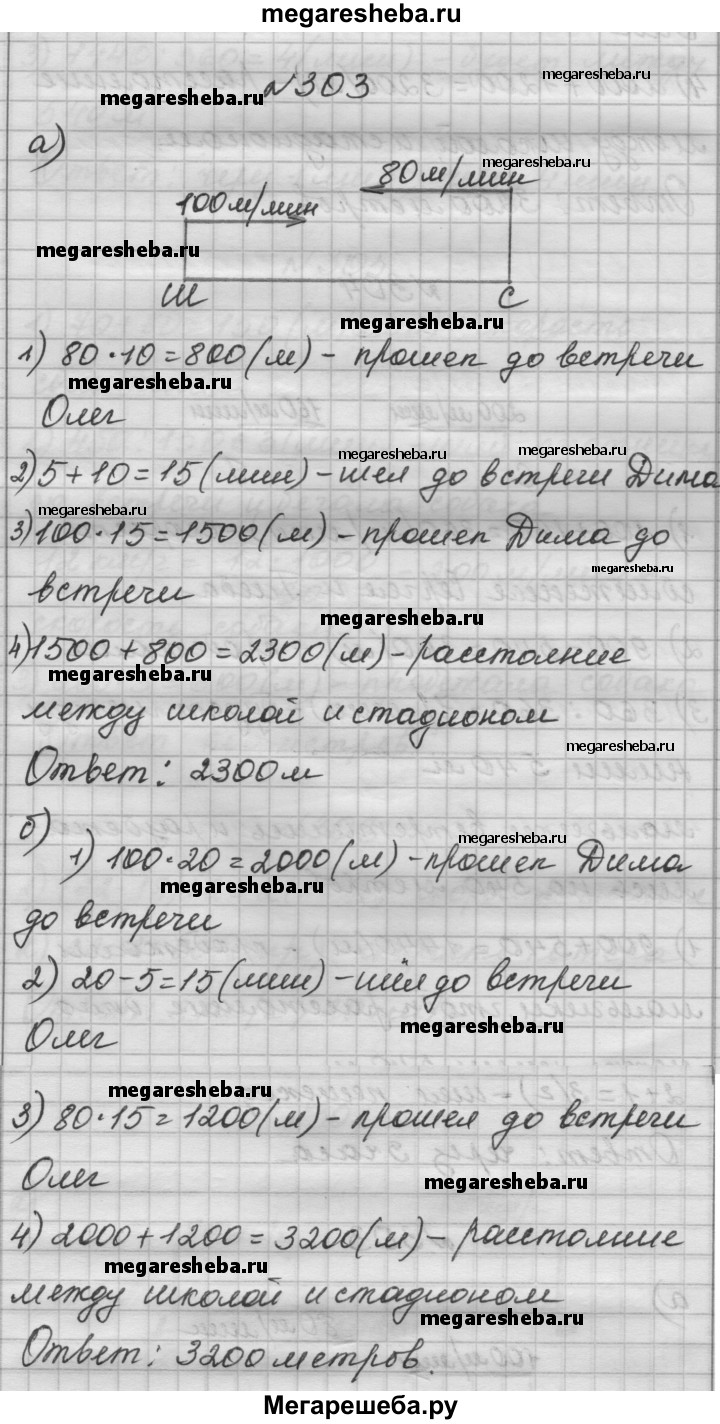 megaresheba.ru
№303
megaresheba.ru
megaresheba.ru
а)
megaresheba.ru
80м/мин
100м/мин
megaresheba.ru
Ш С
megaresheba.ru
1) 80·10=800(м) - прошел до встречи
megaresheba.ru
Олег
megaresheba.ru
megaresheba.ru
2) 5+10=15(мин) - шел до встречи Дима
megaresheba.ru
3) 100·15=1500(м) - прошел Дима до
megaresheba.ru
встречи
megaresheba.ru
4) 1500+800=2300(м) - расстояние
megaresheba.ru
между школой и стадионом.
megaresheba.ru
Ответ: 2300м
б)
megaresheba.ru
1) 100·20=2000(м) - прошел Дима
megaresheba.ru
до встречи
2) 20-5=15(мин) - шёл до встречи
megaresheba.ru
Олег
megaresheba.ru
3) 80·15=1200(м) - прошел до встречи
Олег
megaresheba.ru
4) 2000+1200=3200(м) - расстояние
megaresheba.ru
между школой и стадионом
megaresheba.ru
Ответ: 3200метров.
Мегарешеба.ру